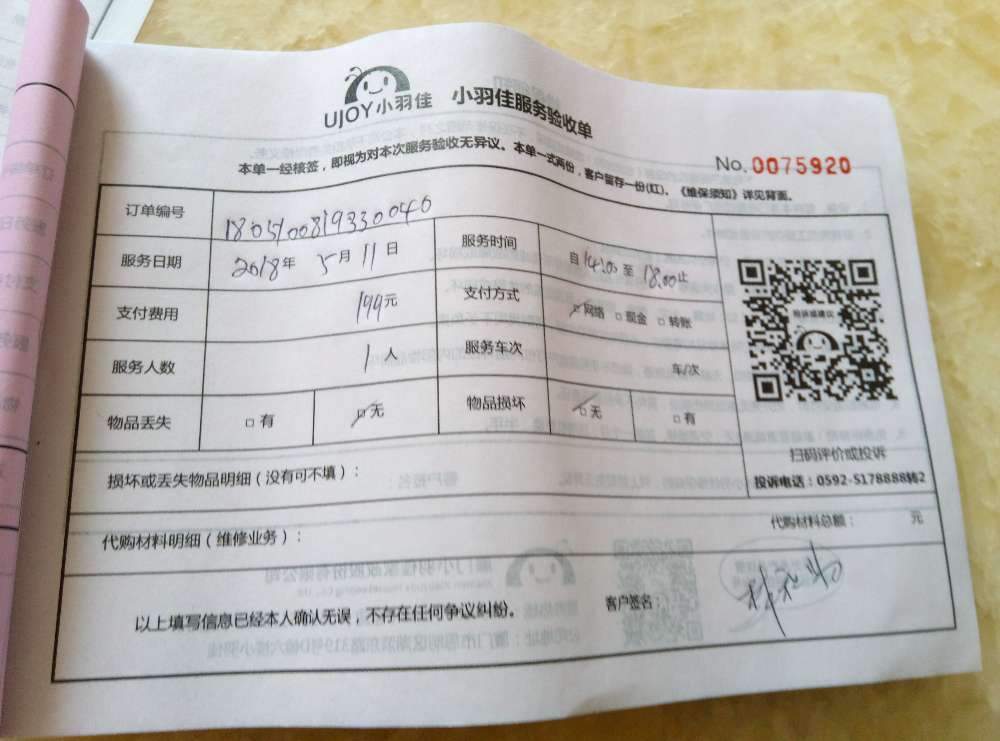 UJOY小羽佳 小羽佳服务验收单
本单一经核签，即视为对本次服务验收无异议。本单一式两份，客户留存一份(红)。《维保须知》详见背面。
No. 0075920
订单编号 18051008193300040
服务日期 2018年 5月 11日 服务时间 自 14:00 至 18:00止
支付费用 199元 支付方式 网络 现金 转账
服务人数 1人 服务车次 车/次
物品丢失 有 无 物品损坏 无 有
投诉或建议
扫码评价或投诉
投诉电话：0592-5178888转2
损坏或丢失物品明细（没有可不填）：
代购材料明细（维修业务）： 代购材料总额： 元
以上填写信息已经本人确认无误，不存在任何争议纠纷。 客户签名：